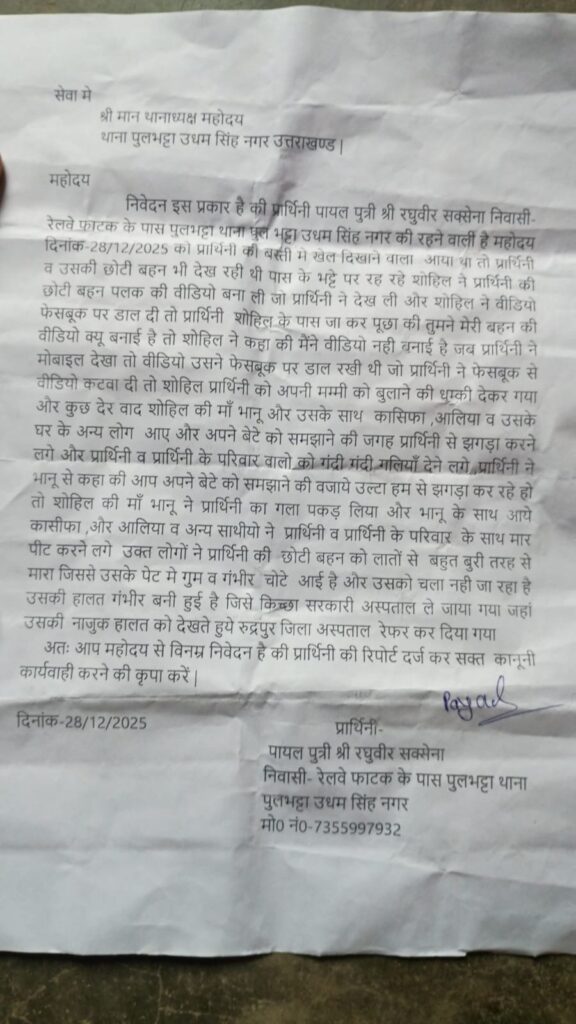 सेवा मे
श्री मान थानाध्यक्ष महोदय
थाना पुलभट्टा उधम सिंह नगर उत्तराखण्ड |
महोदय
निवेदन इस प्रकार है की प्रार्थिनी पायल पुत्री श्री रघुवीर सक्सेना निवासी-
रेलवे फाटक के पास पुलभट्टा थाना पुल भट्टा उधम सिंह नगर की रहने वाली है महोदय
दिनांक-28/12/2025 को प्रार्थिनी की बस्ती मे खेल दिखाने वाला आया था तो प्रार्थिनी
व उसकी छोटी बहन भी देख रही थी पास के भट्टे पर रह रहे शोहिल ने प्रार्थिनी की
छोटी बहन पलक की वीडियो बना ली जो प्रार्थिनी ने देख ली और शोहिल ने वीडियो
फेसबूक पर डाल दी तो प्रार्थिनी शोहिल के पास जा कर पूछा की तुमने मेरी बहन की
वीडियो क्यू बनाई है तो शोहिल ने कहा की मैंने वीडियो नही बनाई है जब प्रार्थिनी ने
मोबाइल देखा तो वीडियो उसने फेसबूक पर डाल रखी थी जो प्रार्थिनी ने फेसबूक से
वीडियो कटवा दी तो शोहिल प्रार्थिनी को अपनी मम्मी को बुलाने की धम्की देकर गया
और कुछ देर वाद शोहिल की माँ भानू और उसके साथ कासिफा ,आलिया व उसके
घर के अन्य लोग आए और अपने बेटे को समझाने की जगह प्रार्थिनी से झगड़ा करने
लगे और प्रार्थिनी व प्रार्थिनी के परिवार वालो को गंदी गंदी गलियाँ देने लगे ,प्रार्थिनी ने
भानू से कहा की आप अपने बेटे को समझाने की वजाये उल्टा हम से झगड़ा कर रहे हो
तो शोहिल की माँ भानू ने प्रार्थिनी का गला पकड़ लिया और भानू के साथ आये
कासीफा ,और आलिया व अन्य साथीयो ने प्रार्थिनी व प्रार्थिनी के परिवार के साथ मार
पीट करने लगे उक्त लोगों ने प्रार्थिनी की छोटी बहन को लातों से बहुत बुरी तरह से
मारा जिससे उसके पेट मे गुम व गंभीर चोटे आई है और उसको चला नही जा रहा है
उसकी हालत गंभीर बनी हुई है जिसे किच्छा सरकारी अस्पताल ले जाया गया जहां
उसकी नाजुक हालत को देखते हुये रुद्रपुर जिला अस्पताल रेफर कर दिया गया
अतः आप महोदय से विनम्र निवेदन है की प्रार्थिनी की रिपोर्ट दर्ज कर सक्त कानूनी
कार्यवाही करने की कृपा करें |
Payal
दिनांक-28/12/2025
प्रार्थिनी-
पायल पुत्री श्री रघुवीर सक्सेना
निवासी- रेलवे फाटक के पास पुलभट्टा थाना
पुलभट्टा उधम सिंह नगर
मो0 नं0-7355997932